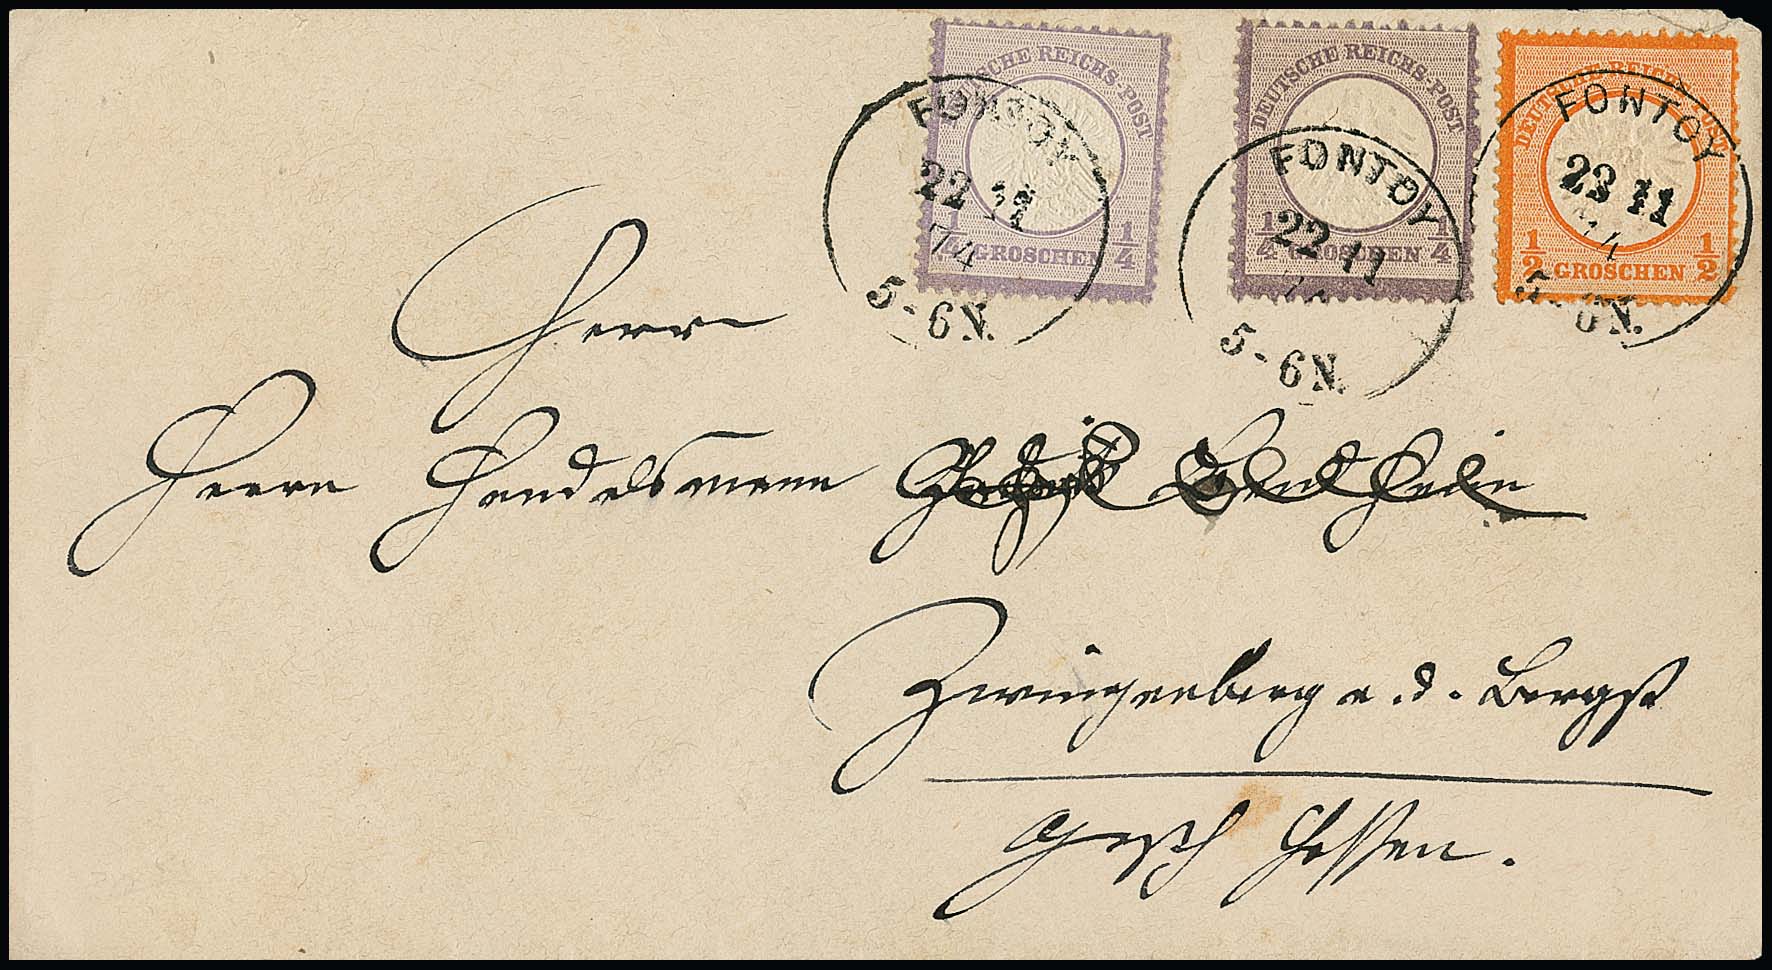 DEUTSCHE REICHS-POST
1/4 GROSCHEN 1/4
DEUTSCHE REICHS-POST
1/4 GROSCHEN 1/4
DEUTSCHE REICHS-POST
1/2 GROSCHEN 1/2
FONTOY
22 11
74
5-6N.
FONTOY
22 11
5-6N.
FONTOY
22 11
74
5-6N.
Herrn
Herrn Handelsmann
Zwingenberg a. d. Bergst
Hessen.